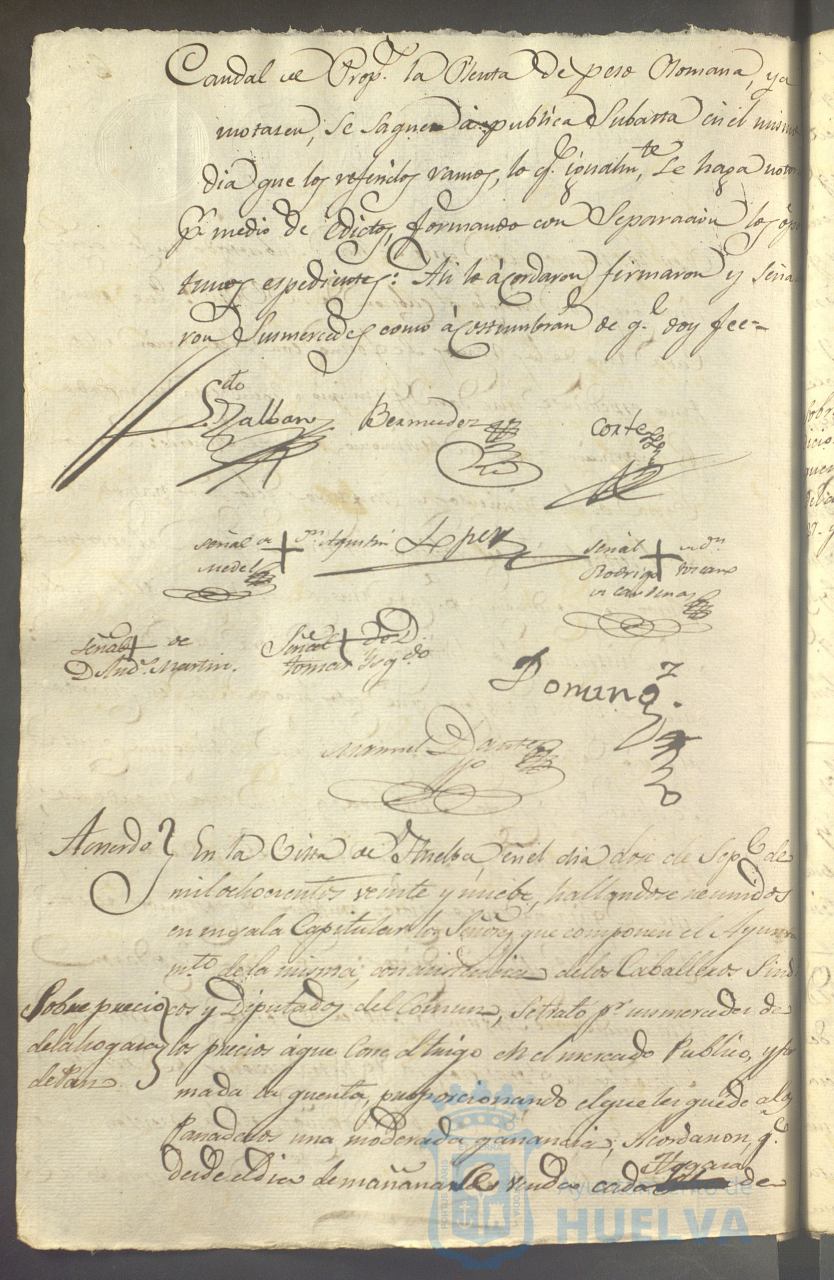 Caudal de Prop.s la Renta de peso Romana, ya
notaren, se saquen à publica Subasta en el mismo
dia que los referidos ramos, lo q.e igualm.te se haga notor
p.r medio de Edictos, formando con Separacion los opor
tunos espedientes: Asi lo àcordaron firmaron y señala
ron Susmercedes como àcostumbran de q.e doy fee=
L.do Balbani Bermudez Cortes
señal de + D.n Agustin Lopez señal + de D.n
Medel Rodrigo
de Cardenas
señal + de Señal + de D.
D. And.s Martin. Tomas
Doming.z
Manuel Dante
Acuerdo En la Villa de Huelba, en el dia doce de Sep.e de
mil ochocientos veinte y nuebe, hallandose reunidos
en su sala Capitular los Señores que componen el Ayunta
m.to de la misma, con asistencia de los Caballeros Sindi
Sobre precio cos y Diputados del Comun, se trató p.r sus mercedes de
de la hogaza los precios à que Corre el trigo en el mercado Publico, y for
de Pan mada la quenta, proporcionando el que les quede a los
Panaderos una moderada ganancia, Acordaron, q.e
Hogaza
desde el dia de mañana se venda cada de
Ayuntamiento de
HUELVA